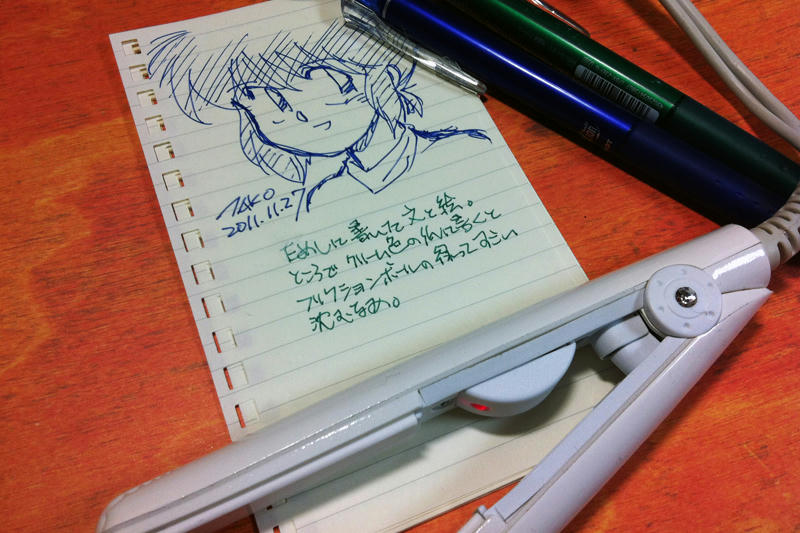 TAKO
2011.11.27
ためしに書いてた文と絵。
ところでクリーム色の紙に書くと
フリクションボールの緑ってすごい
沈むなぁ。